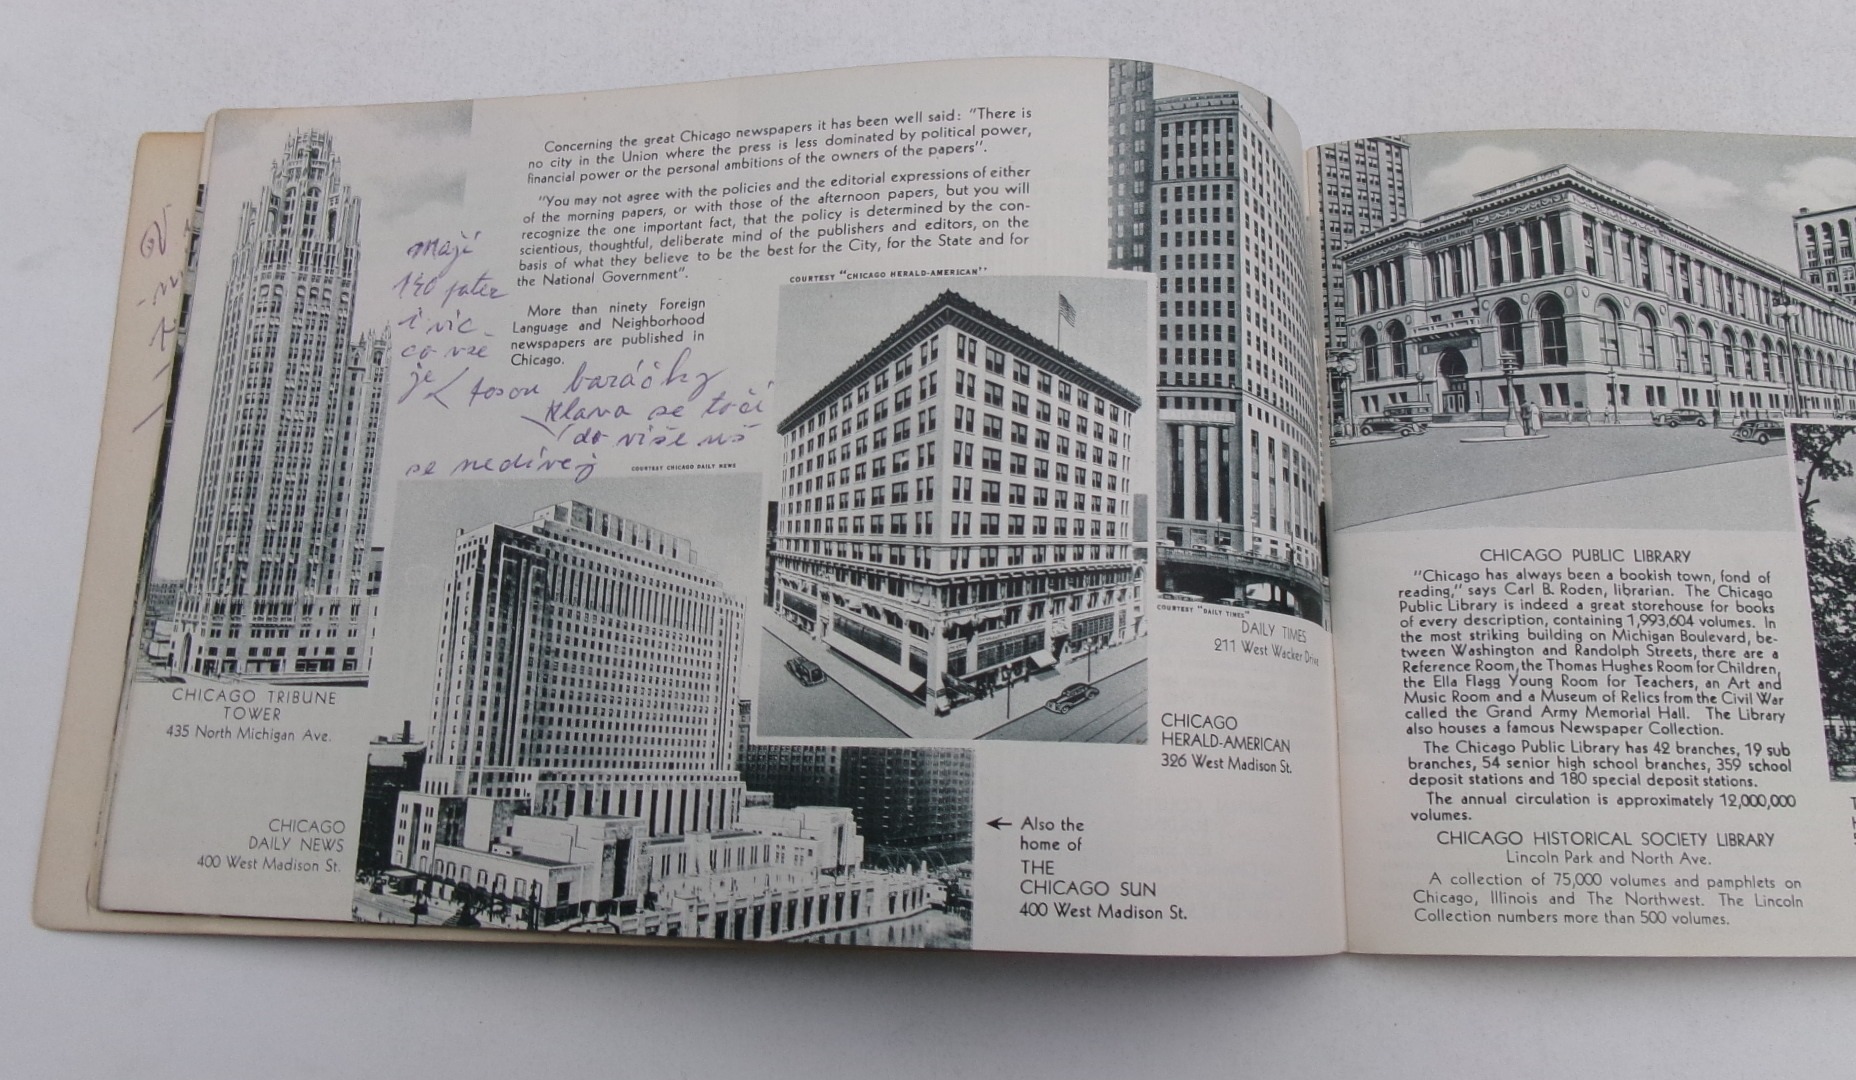 Concerning the great Chicago newspapers it has been well said: "There is
no city in the Union where the press is less dominated by political power,
financial power or the personal ambitions of the owners of the papers".
"You may not agree with the policies and the editorial expressions of either
of the morning papers, or with those of the afternoon papers, but you will
recognize the one important fact, that the policy is determined by the con-
scientious, thoughtful, deliberate mind of the publishers and editors, on the
basis of what they believe to be the best for the City, for the State and for
the National Government".
More than ninety Foreign
Language and Neighborhood
newspapers are published in
Chicago.
mají
pater
i víc
co vše
je
jsou baráčky
hlava se točí
do výše už
se nedívej
COURTESY "CHICAGO HERALD-AMERICAN"
COURTESY CHICAGO DAILY NEWS
CHICAGO TRIBUNE
TOWER
435 North Michigan Ave.
CHICAGO
DAILY NEWS
400 West Madison St.
COURTESY "DAILY TIMES"
DAILY TIMES
211 West Wacker Drive
CHICAGO
HERALD-AMERICAN
326 West Madison St.
← Also the
home of
THE
CHICAGO SUN
400 West Madison St.
CHICAGO PUBLIC LIBRARY
"Chicago has always been a bookish town, fond of
reading," says Carl B. Roden, librarian. The Chicago
Public Library is indeed a great storehouse for books
of every description, containing 1,993,604 volumes. In
the most striking building on Michigan Boulevard, be-
tween Washington and Randolph Streets, there are a
Reference Room, the Thomas Hughes Room for Children,
the Ella Flagg Young Room for Teachers, an Art and
Music Room and a Museum of Relics from the Civil War
called the Grand Army Memorial Hall. The Library
also houses a famous Newspaper Collection.
The Chicago Public Library has 42 branches, 19 sub
branches, 54 senior high school branches, 359 school
deposit stations and 180 special deposit stations.
The annual circulation is approximately 12,000,000
volumes.
CHICAGO HISTORICAL SOCIETY LIBRARY
Lincoln Park and North Ave.
A collection of 75,000 volumes and pamphlets on
Chicago, Illinois and The Northwest. The Lincoln
Collection numbers more than 500 volumes.